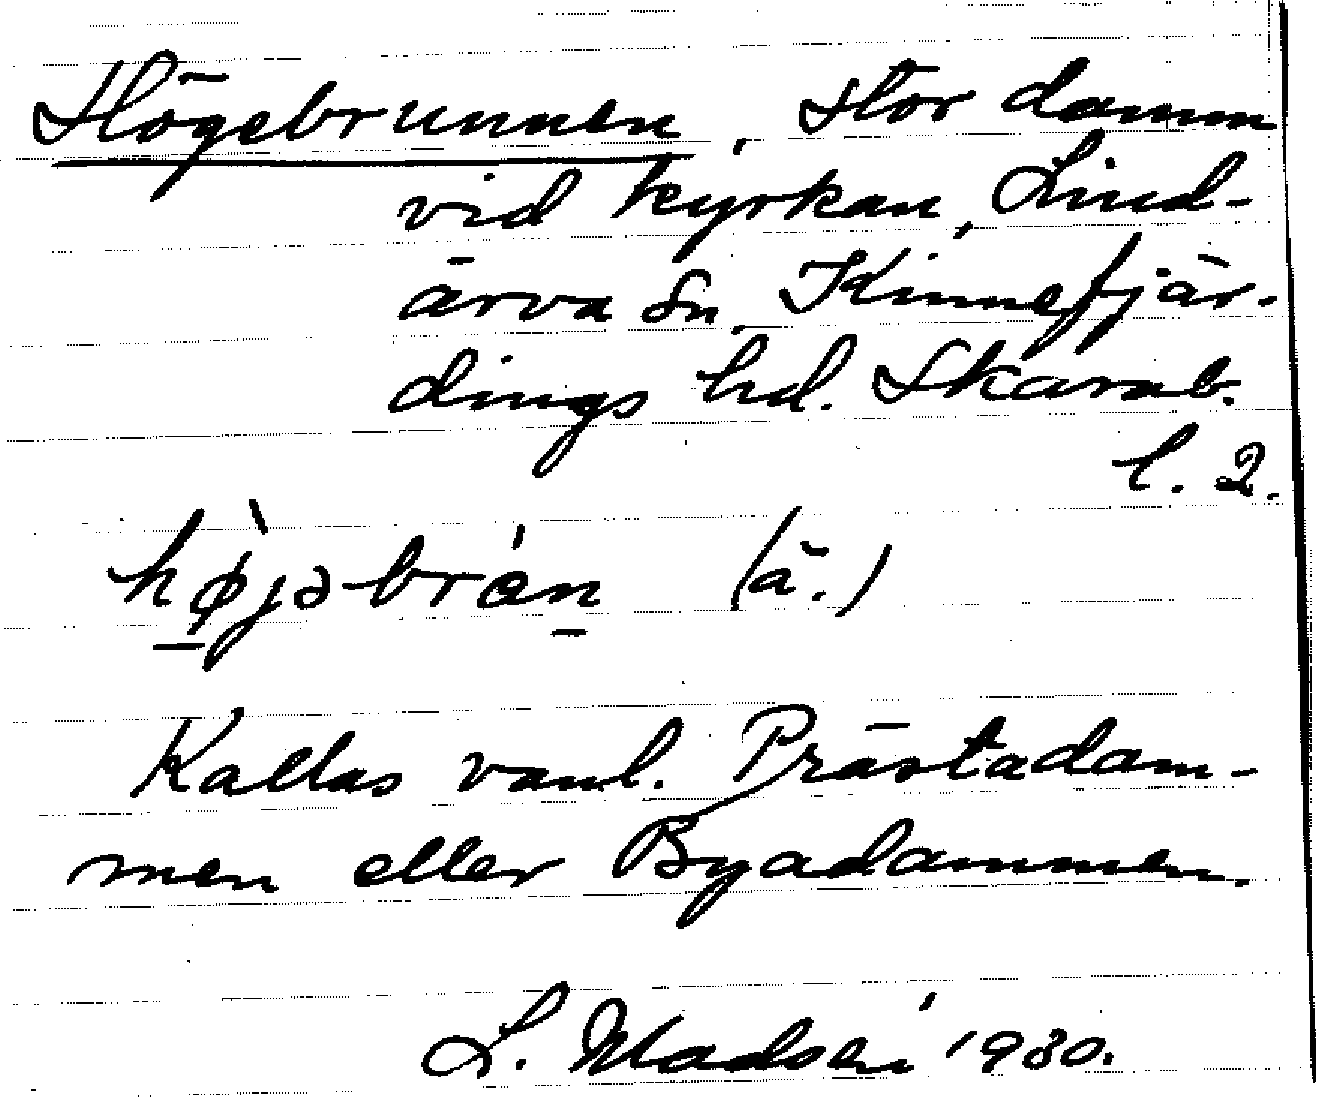 Högebrunnen, stor damm
vid kyrkan, Lind-
ärva sn, Kinnefjär-
dings hd. Skarab.
l. 2.
hø̀jəbrón (ä.)
Kallas vanl. Prästadam-
men eller Byadammen.
L. Madsén 1930.